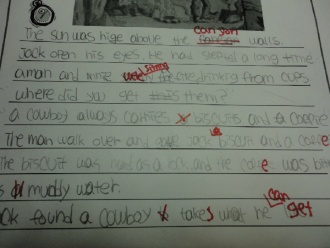 The sun was hige above the canyon walls.
Jack open his eyes. He has sleped a long time
a man and nine sitting the fire drinking from cups
where did you get them?
a cowboy always carries biscuts and a
The man walk over and gave Jack a biscuit and a coffe
The biscuit was hard as a rock and the coffe was bitt
as muddy water.
Jack found a cowboy takes what he can get